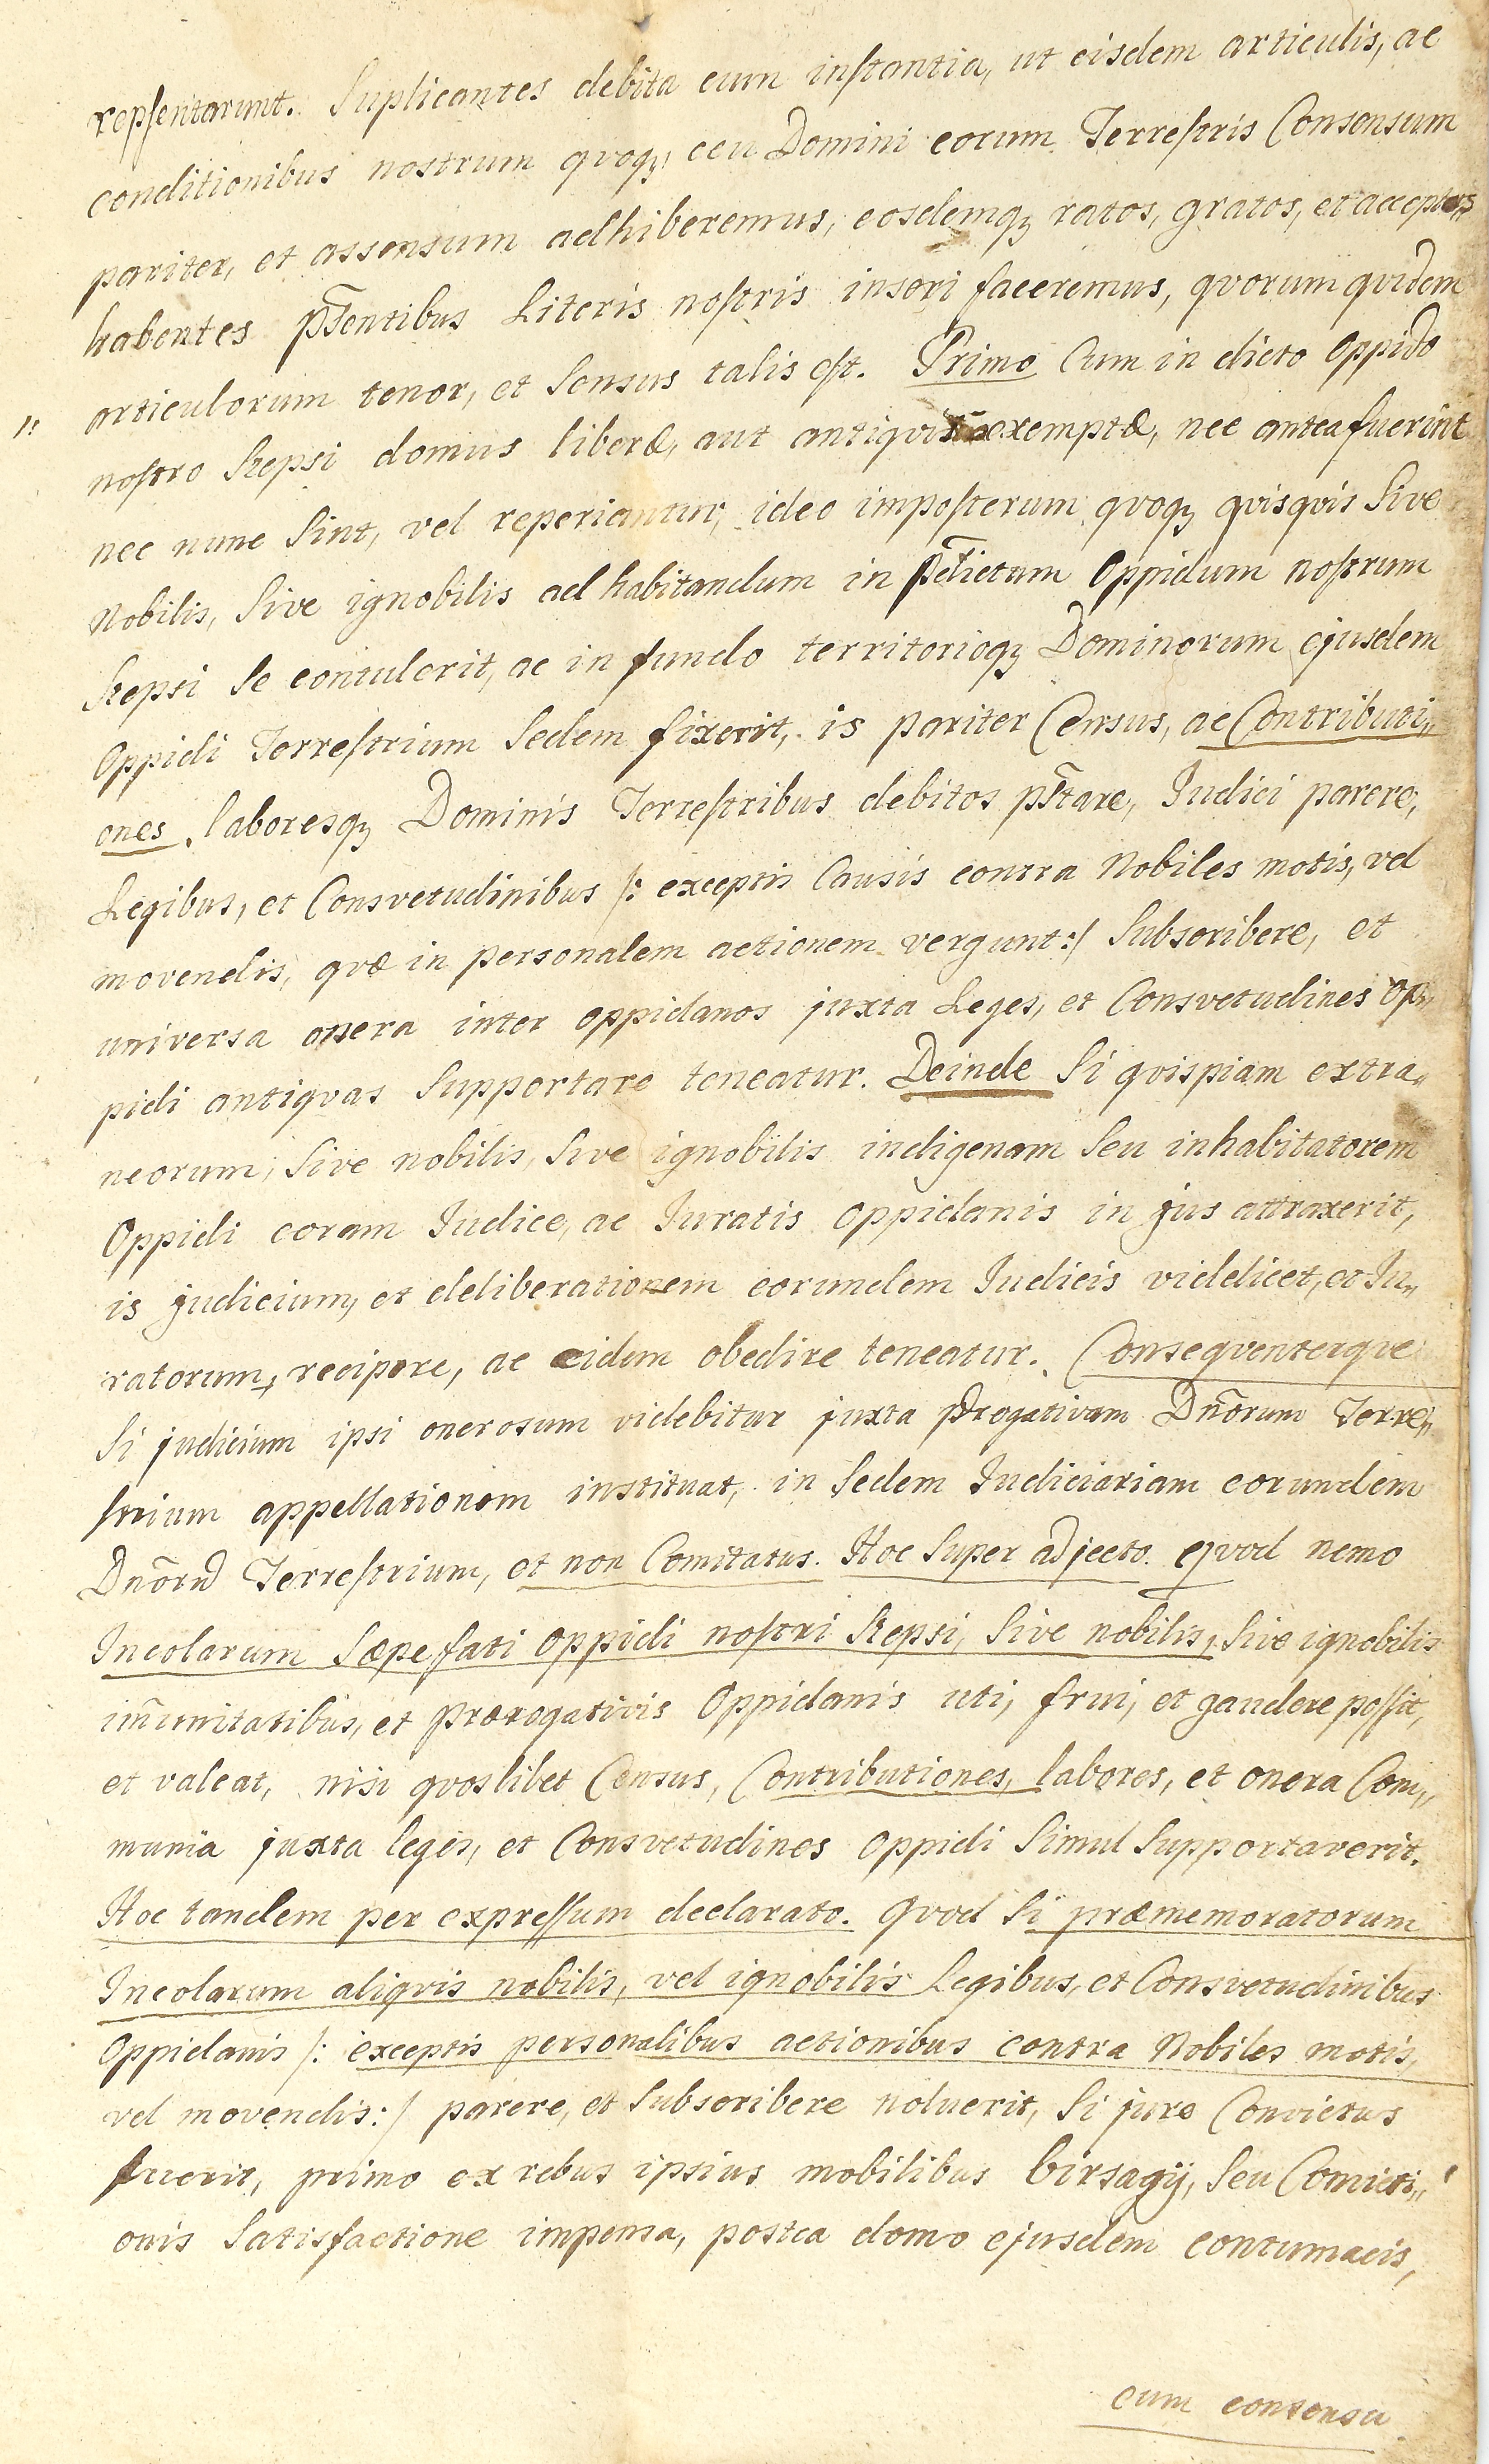 repsentarunt. Suplicantes debita cum instantia, ut eisdem articulis, ac
conditionibus nostrum qvoq; ceu Domini eorum Terrestris Consensum
pariter, et assensum adhiberemus, eosdemq; ratos, gratos, et acceptos
habentes pn̄sentibus Literis nostris inseri faceremus, qvorum qvidem
articulorum tenor, et Sensus talis est. Primo Cum in dicto Oppido
nostro Szepsi domus liberæ, aut antiqvis exemptæ, nec antea fuerint
nec nunc Sint, vel reperiantur, ideo imposterum qvoq; qvisqvis Sive
Nobilis, Sive ignobilis ad habitandum in p̄dictum Oppidum nostrum
Szepsi Se contulerit, ac in fundo territorioq; Dominorum ejusdem
Oppidi Terrestrium Sedem fixerit, is pariter Census, ac Contributi„
ones, laboresq; Dominis Terrestribus debitos p̄stare, Judici parere,
Legibus, et Consvetudinibus /: exceptis Causis contra Nobiles motis, vel
movendis, qvæ in personalem actionem vergunt :/ Subscribere, et
universa onera inter oppidanos juxta Leges, et Consvetudines Op„
pidi antiqvas Supportare teneatur. Deinde Si qvispiam extra„
neorum, Sive nobilis, Sive ignobilis indigenam Seu inhabitatorem
Oppidi coram Judice, ac Juratis oppidanis in jus attraxerit,
is judicium, et deliberationem eorundem Judicis videlicet, et Ju„
ratorum, recipere, ac eidem obedire teneatur. Conseqventerqve
Si judicium ipsi onerosum videbitur juxta p̄rogativam Dn̄orum Terre„
strium appellationem instituat, in Sedem Judiciariam eorundem
Dn̄orū Terrestrium, et non Comitatus. Hoc Super adjecto. qvod nemo
Incolarum Sæpefati oppidi nostri Szepsi, Sive nobilis, Sive ignobilis
im̄unitatibus, et prærogativis Oppidanis uti, frui, et gaudere possit,
et valeat, nisi qvoslibet Census, Contributiones, labores, et onera Com„
munia juxta leges, et Consvetudines Oppidi Simul Supportaverit.
Hoc tandem per expressum declarato. Qvod Si præmemoratorum
Incolarum aliqvis nobilis, vel ignobilis Legibus, et Consvetudinibus
Oppidanis /: exceptis personalibus actionibus contra Nobiles motis,
vel movendis :/ parere, et Subscribere noluerit, Si jure Convictus
fuerit, primo ex rebus ipsius mobilibus birsagij, Seu Convicti„
onis Satisfactione impensa, postea domo ejusdem contumacis,
cum consensu